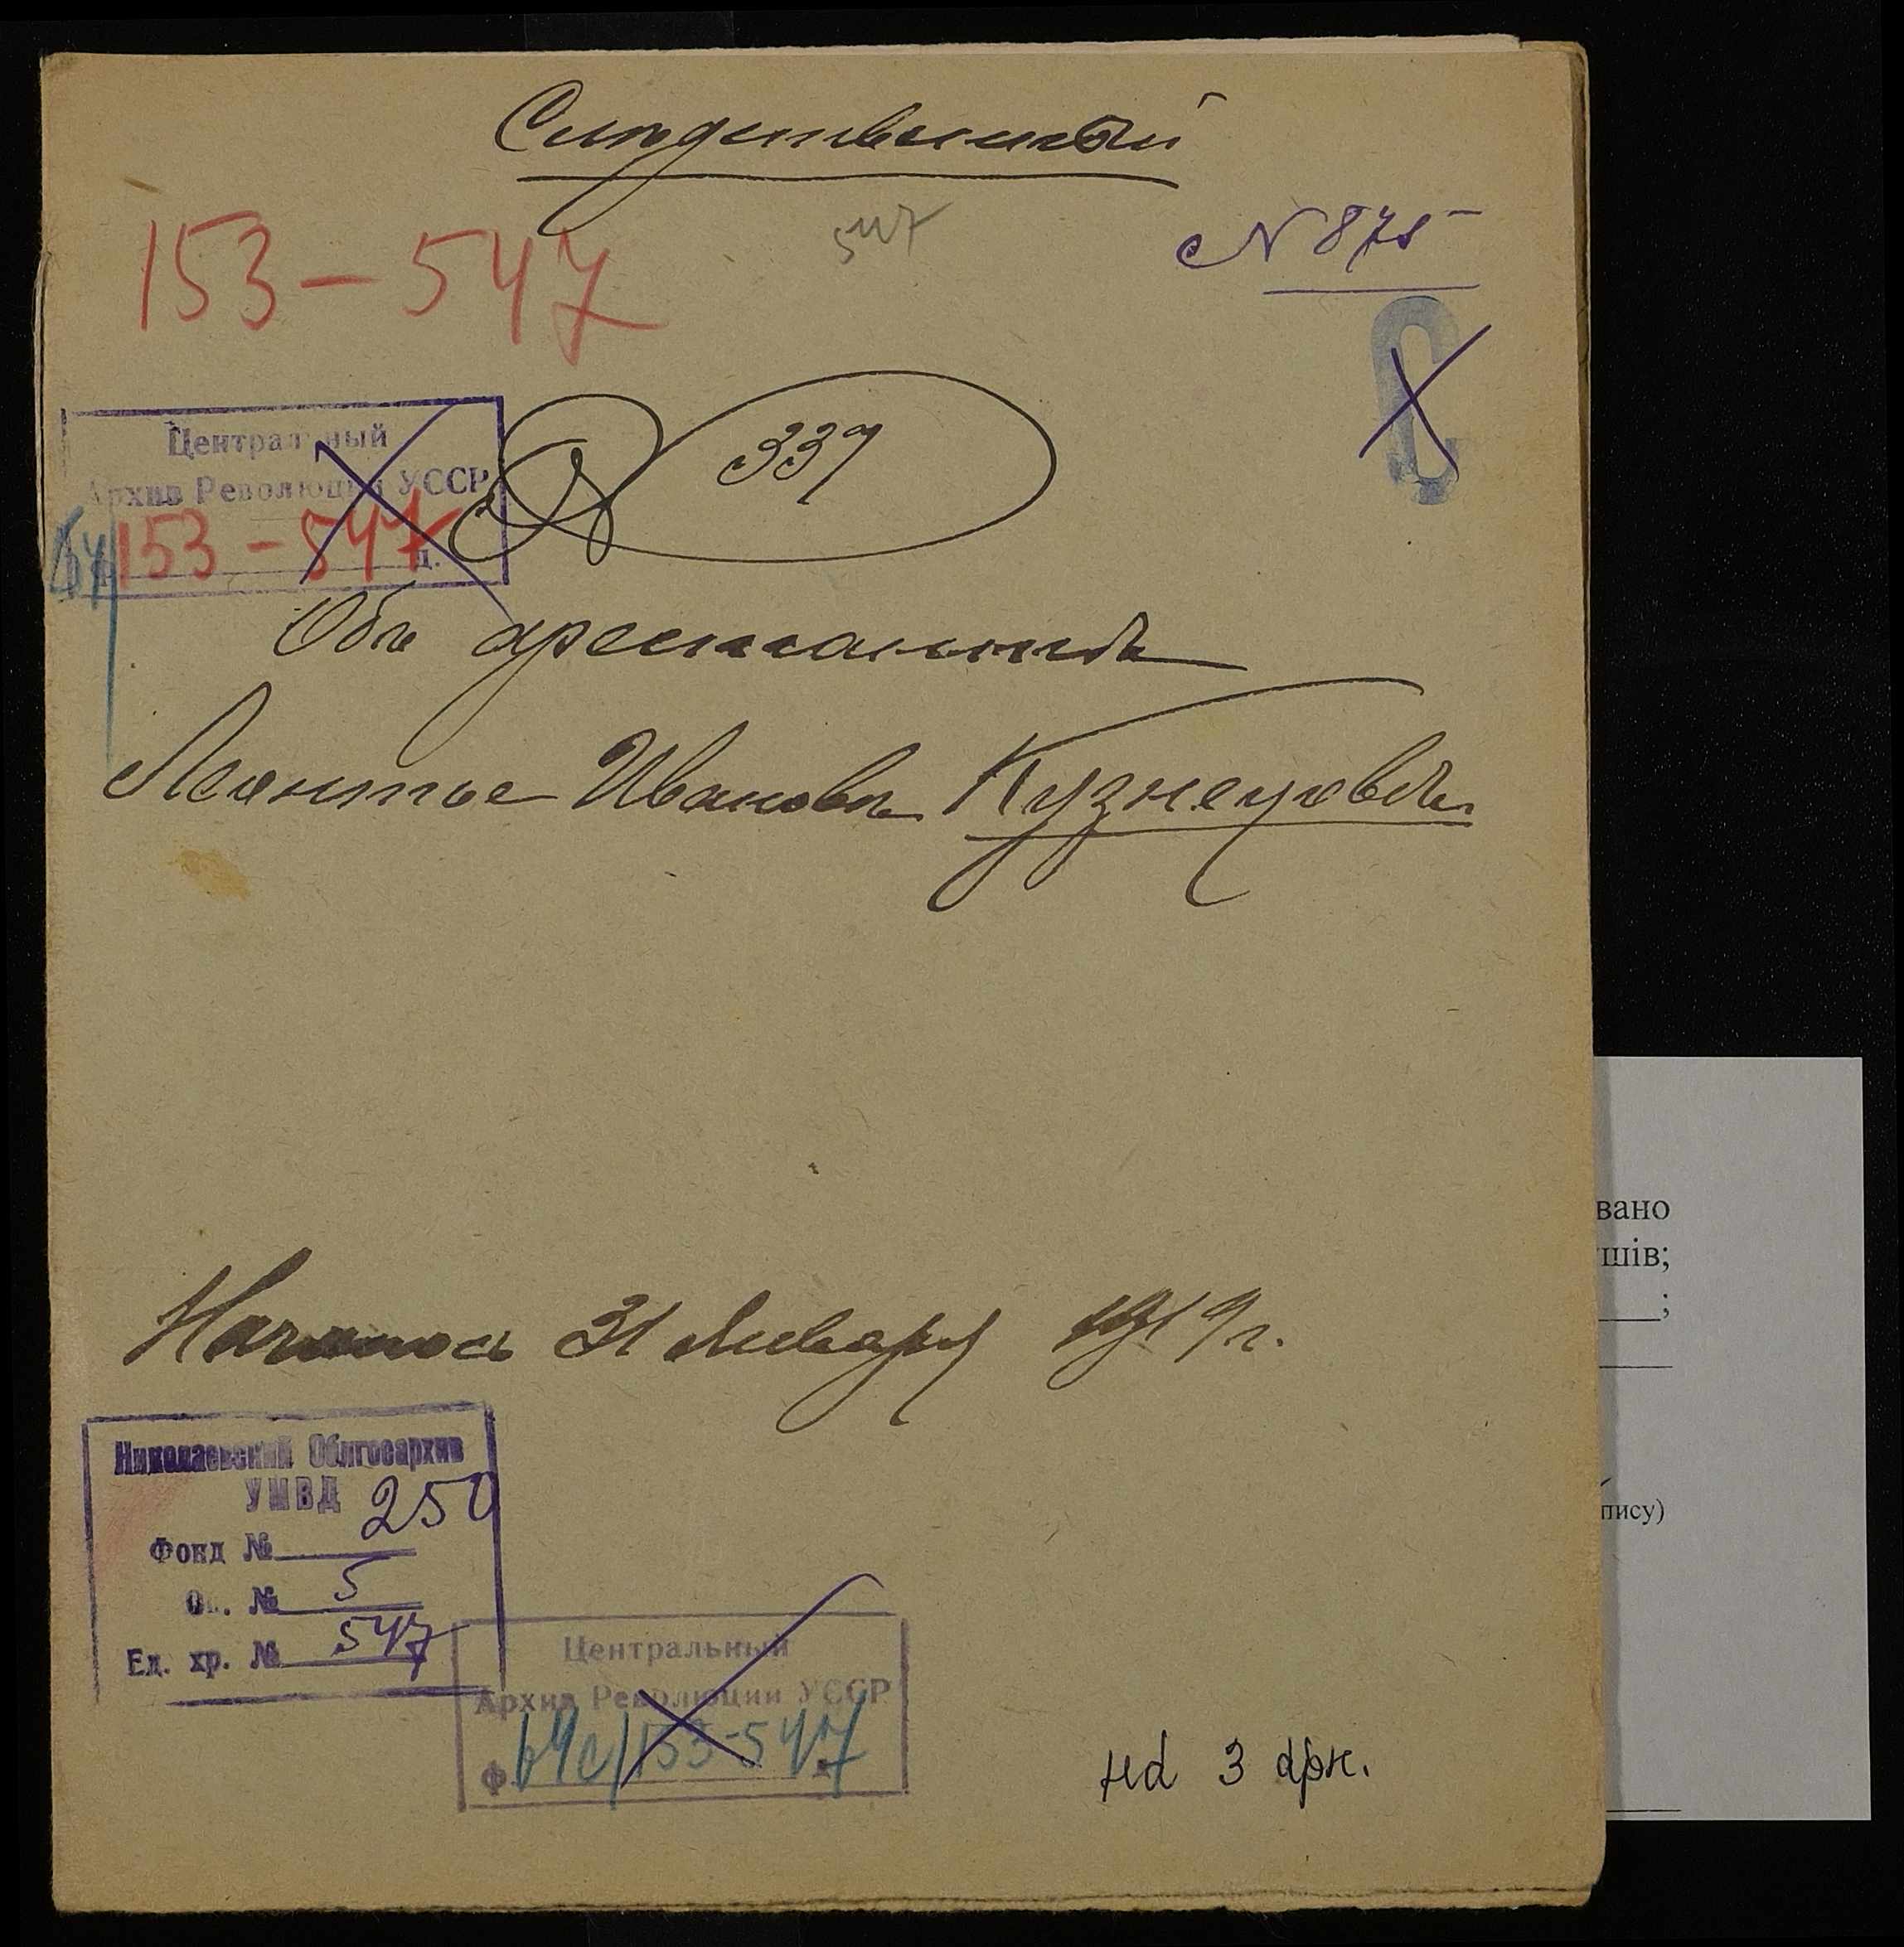 Слѣдственный
153-547
547
N 875
Центральный
Архив Революции УССР
153-547
д.
337
Объ арестантѣ
Леонтье Ивановѣ Кузнецовѣ
Началось 31 Января 1919 г.
Николаевский Облгосархив
УМВД
Фонд № 250
Оп. № 5
Ед. хр. № 547
Центральный
Архив Революции УССР
ф. 64с/153-547
на 3 арк.
вано
шів;
;
пису)